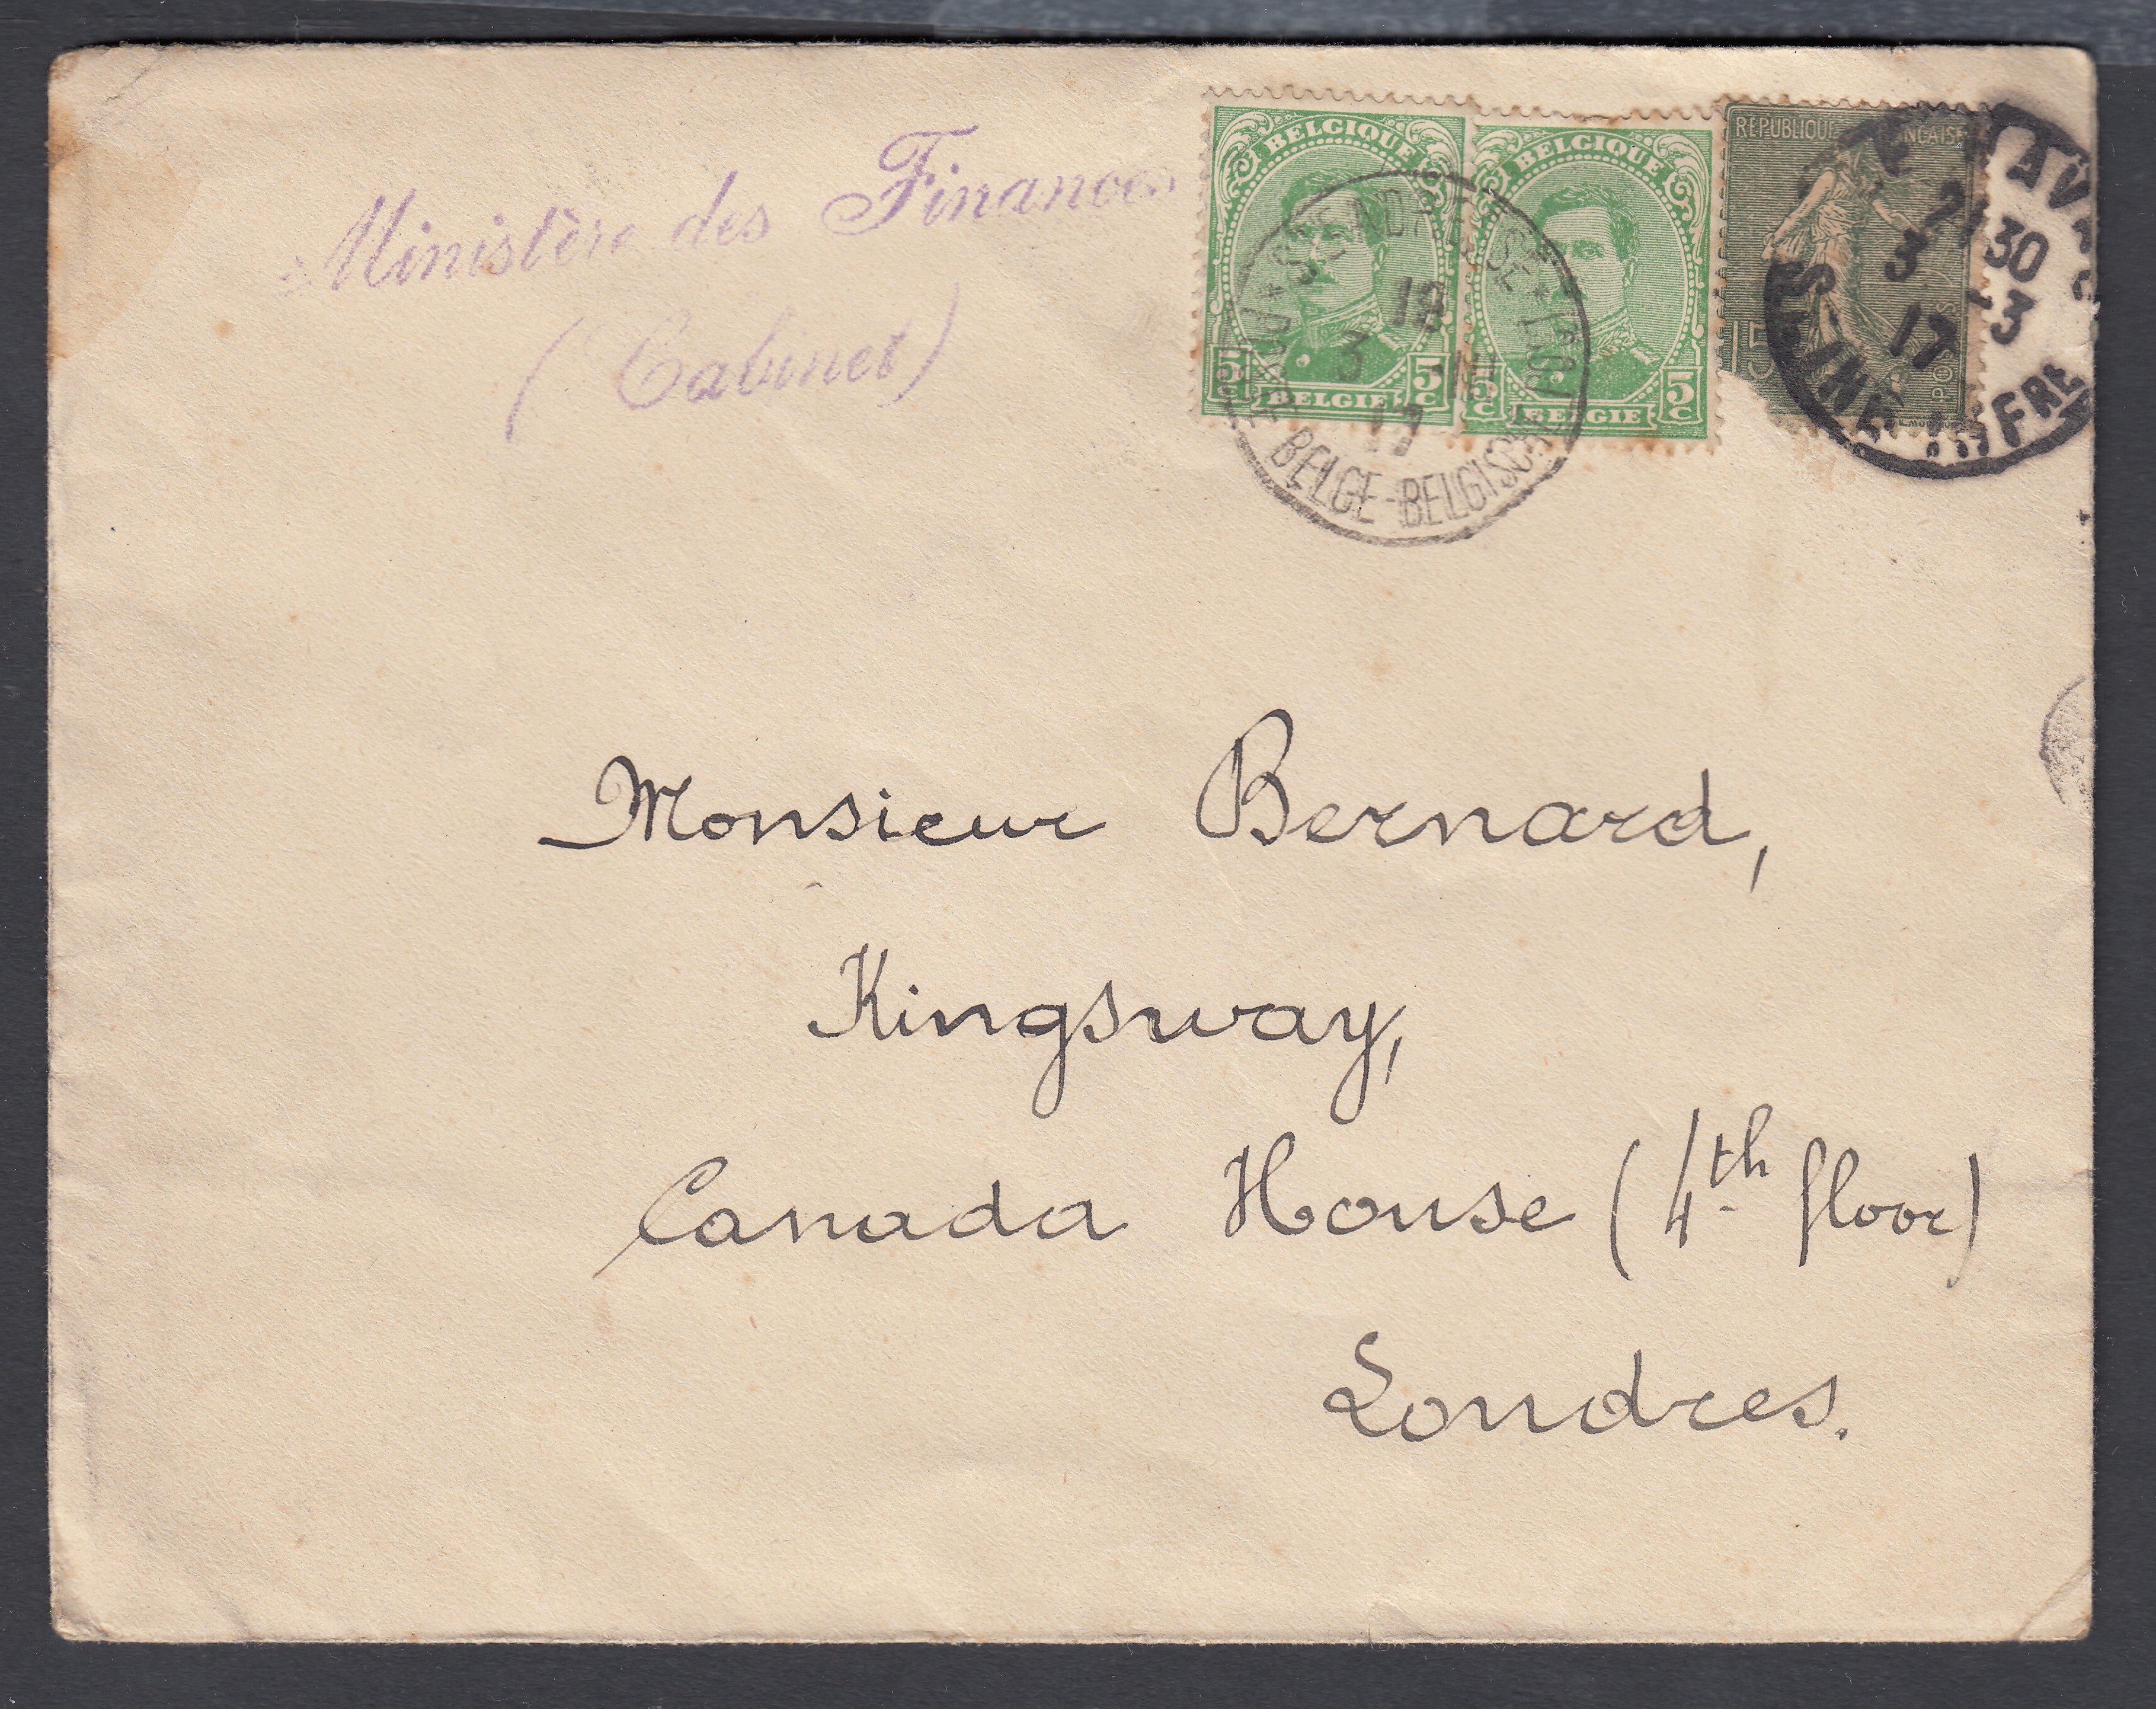 Ministère des Finances
(Cabinet)
BELGIQUE
5c 5c
BELGIE
BELGIQUE
5c 5c
BELGIE
REPUBLIQUE FRANÇAISE
15
POSTES
STE ADRESSE
18
3 III
17
BELGE-BELGISCHE
21 30
3 - 3
17
SEINE INFRE
Monsieur Bernard,
Kingsway,
Canada House (4th floor)
Londres.